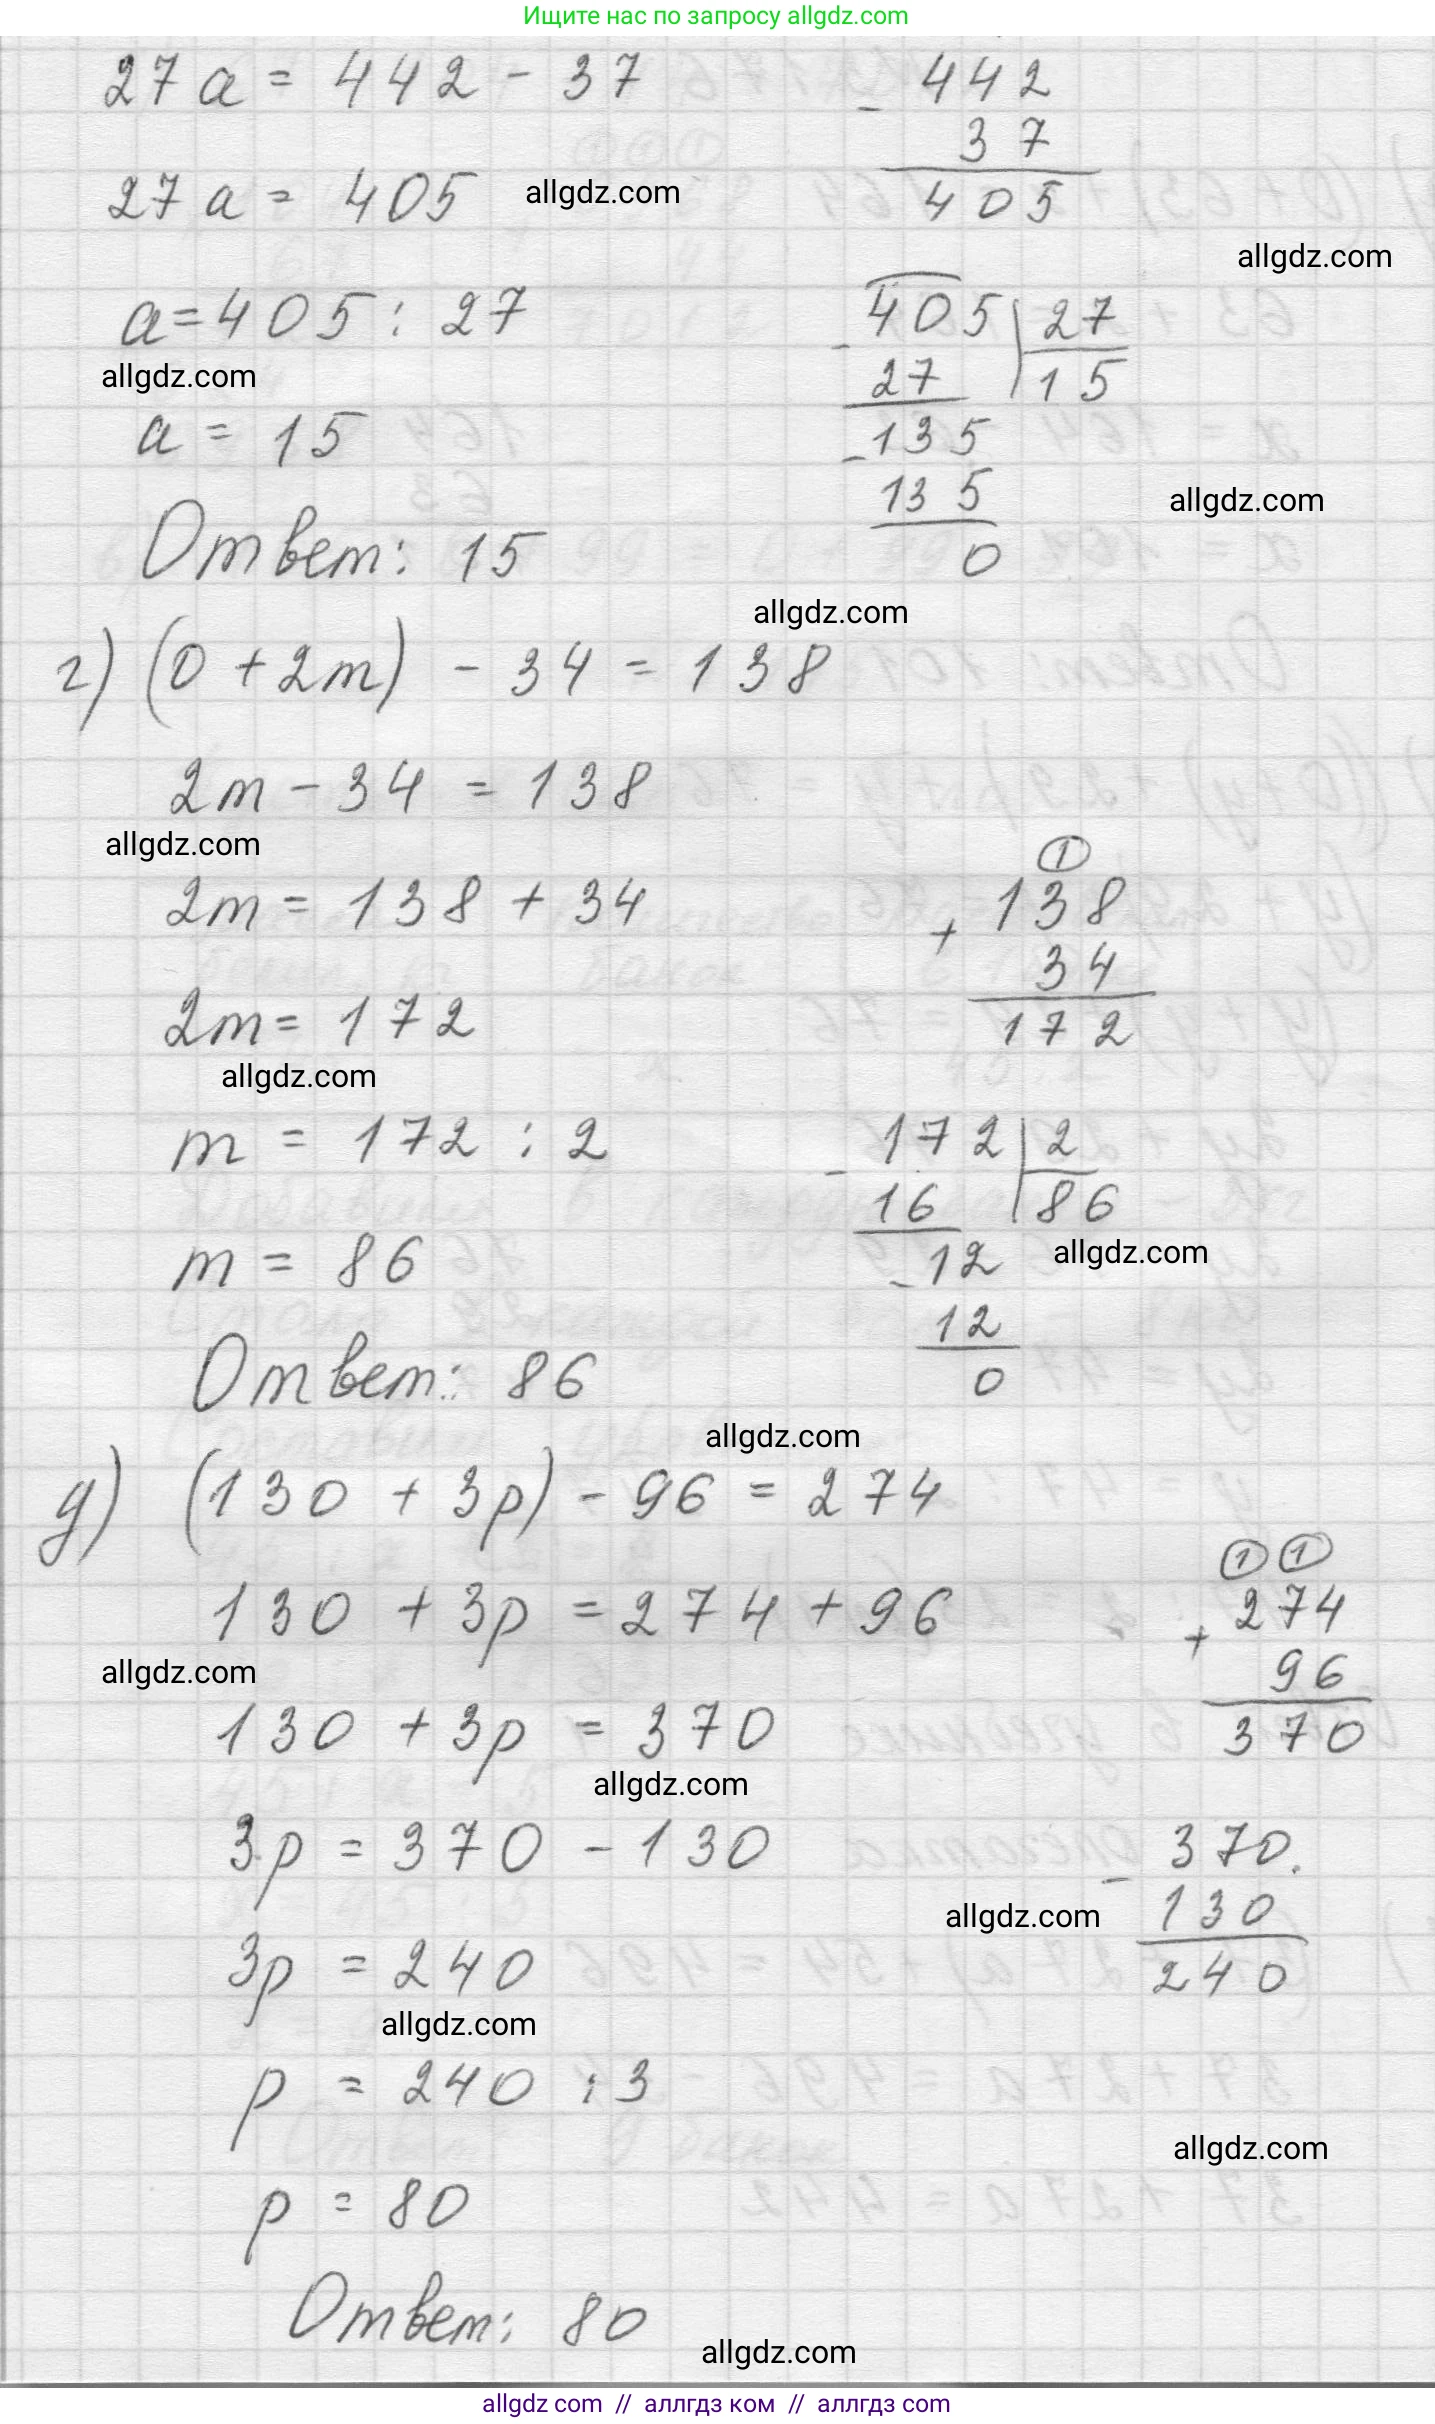 Ищите нас по запросу allgdz.com
27a = 442 - 37
442
- 37
405
27a = 405
allgdz.com
allgdz.com
a=405 : 27
405 | 27
- 27 15
135
- 135
0
allgdz.com
a = 15
allgdz.com
Ответ: 15
allgdz.com
г) (0 + 2m) - 34 = 138
2m - 34 = 138
allgdz.com
2m = 138 + 34
1
138
+ 34
172
2m = 172
allgdz.com
m = 172 : 2
172 | 2
- 16 86
12
- 12
0
allgdz.com
m = 86
Ответ: 86
allgdz.com
д) (130 + 3p) - 96 = 274
130 + 3p = 274 + 96
1 1
274
+ 96
370
allgdz.com
130 + 3p = 370
allgdz.com
3p = 370 - 130
370
- 130
240
allgdz.com
3p = 240
allgdz.com
p = 240 : 3
allgdz.com
p = 80
Ответ: 80
allgdz.com
allgdz com // аллгдз ком // аллгдз com